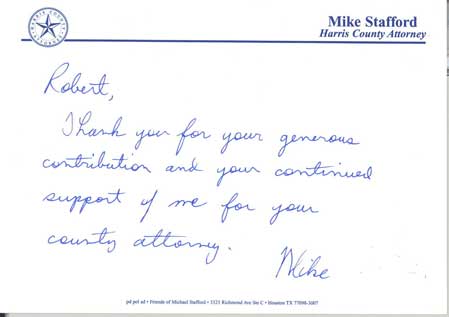 HARRIS COUNTY
ATTORNEY
Mike Stafford
Harris County Attorney
Robert,
Thank you for your generous
contribution and your continued
support of me for your
county attorney.
Mike
pd pol ad • Friends of Michael Stafford • 3323 Richmond Ave Ste C • Houston TX 77098-3007